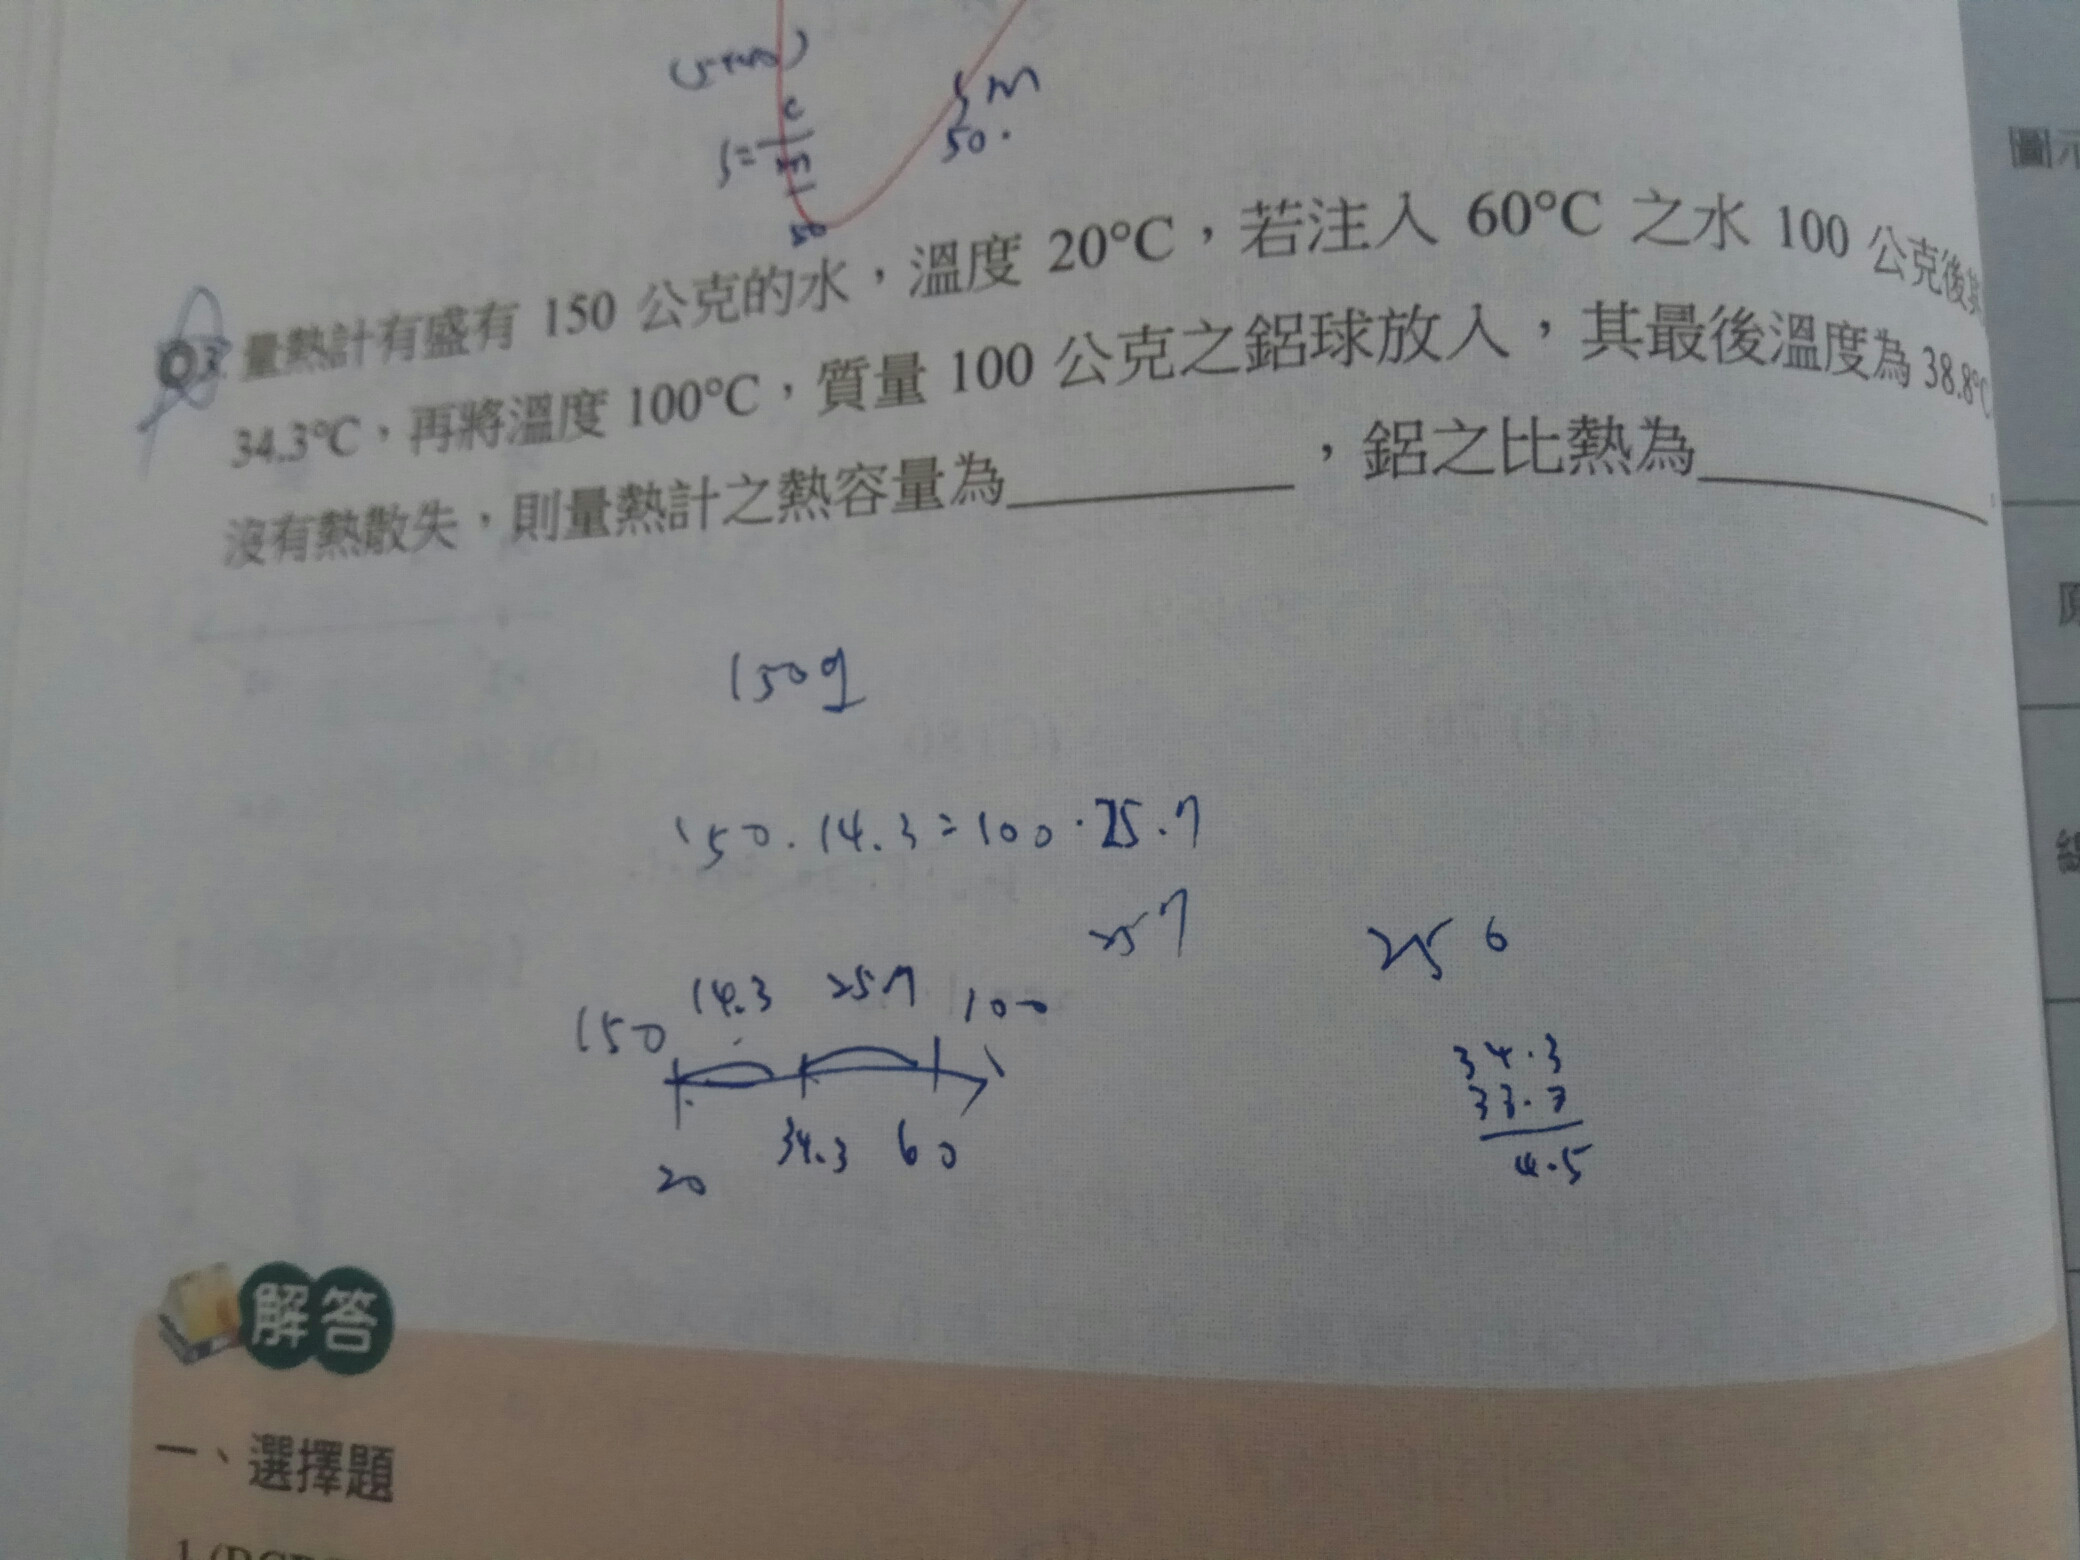 S=c/m
Sm
50.
50
Q3 量熱計有盛有 150 公克的水，溫度 20°C，若注入 60°C 之水 100 公克後其
34.3°C，再將溫度 100°C，質量 100 公克之鋁球放入，其最後溫度為 38.8°C
沒有熱散失，則量熱計之熱容量為＿＿＿＿，鋁之比熱為＿＿＿＿
150g
150.14.3=100.25.7
257
25 6
150 14.3 257 100
20 34.3 60
34.3
33.3
4.5
解答
一、選擇題
圖示